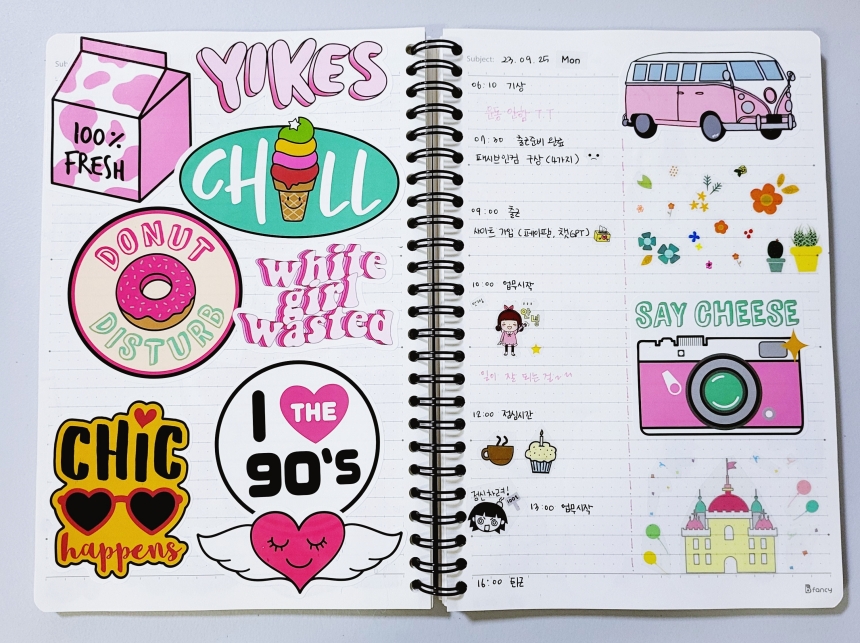 100%
FRESH
YIKES
CHILL
DONUT
DISTURB
white
girl
wasted
I THE
90's
CHiC
happens
Subject: 23.09.25 Mon
06:10 기상
운동 안함 ㅜ.ㅜ
07:30 출근준비 완료
패시브인컴 구상 (4가지)
09:00 출근
사이트 가입 (페이팔, 챗GPT)
10:00 업무시작
안녕
일이 잘 되는건~
12:00 점심시간
정신차려!
13:00 업무시작
16:00 퇴근
SAY CHEESE
fancy